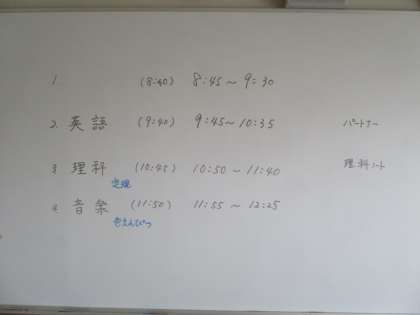 1 (8:40) 8:45〜9:30
2. 英語 (9:40) 9:45〜10:35 パートナー
3 理科 (10:45) 10:50〜11:40 理科ノート
定規
4 音楽 (11:50) 11:55〜12:25
色えんぴつ